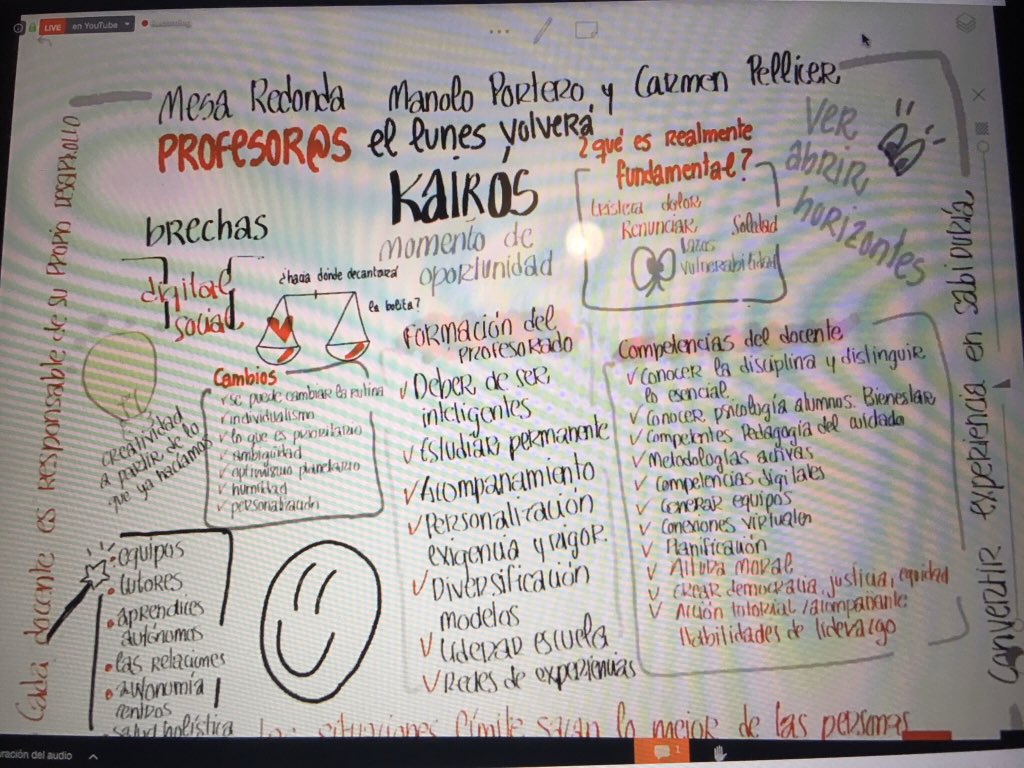 LIVE en YouTube
Mesa Redonda Manolo Portero y Carmen Pellicer
PROFESOR@S el lunes volverá
KAIRÓS
momento de
oportunidad
¿qué es realmente
fundamental?
tristeza dolor
Renunciar Soledad
lazos
vulnerabilidad
VER
abrir
horizontes
Cada docente es responsable de su propio DESARROLLO
brechas
digital
social
¿hacia dónde decantará
la bolita?
Cambios
✓ se puede cambiar la rutina
✓ individualismo
✓ lo que es prioritario
✓ ambigüedad
✓ optimismo planetario
✓ humildad
✓ personalización
CREATIVIDAD
a partir de lo
que ya hacíamos
• equipos
• tutores
• aprendices
autónomos
• las relaciones
• autonomía
salud holística
Formación del
profesorado
✓ Deber de ser
inteligentes
✓ Estudiar permanente
✓ Acompañamiento
✓ Personalización
exigencia y rigor
✓ Diversificación
modelos
✓ Liderar escuela
✓ Redes de experiencias
Competencias del docente
✓ Conocer la disciplina y distinguir
lo esencial
✓ Conocer psicología alumnos. Bienestar
✓ Competentes Pedagogía del cuidado
✓ Metodologías activas
✓ Competencias digitales
✓ Generar equipos
✓ Conexiones virtuales
✓ Planificación
✓ Altura moral
✓ Crear democracia, justicia, equidad
✓ Acción tutorial / acompañante
Habilidades de liderazgo
Convertir experiencia en sabiduría
Las situaciones límite sacan lo mejor de las personas
ración del audio
1